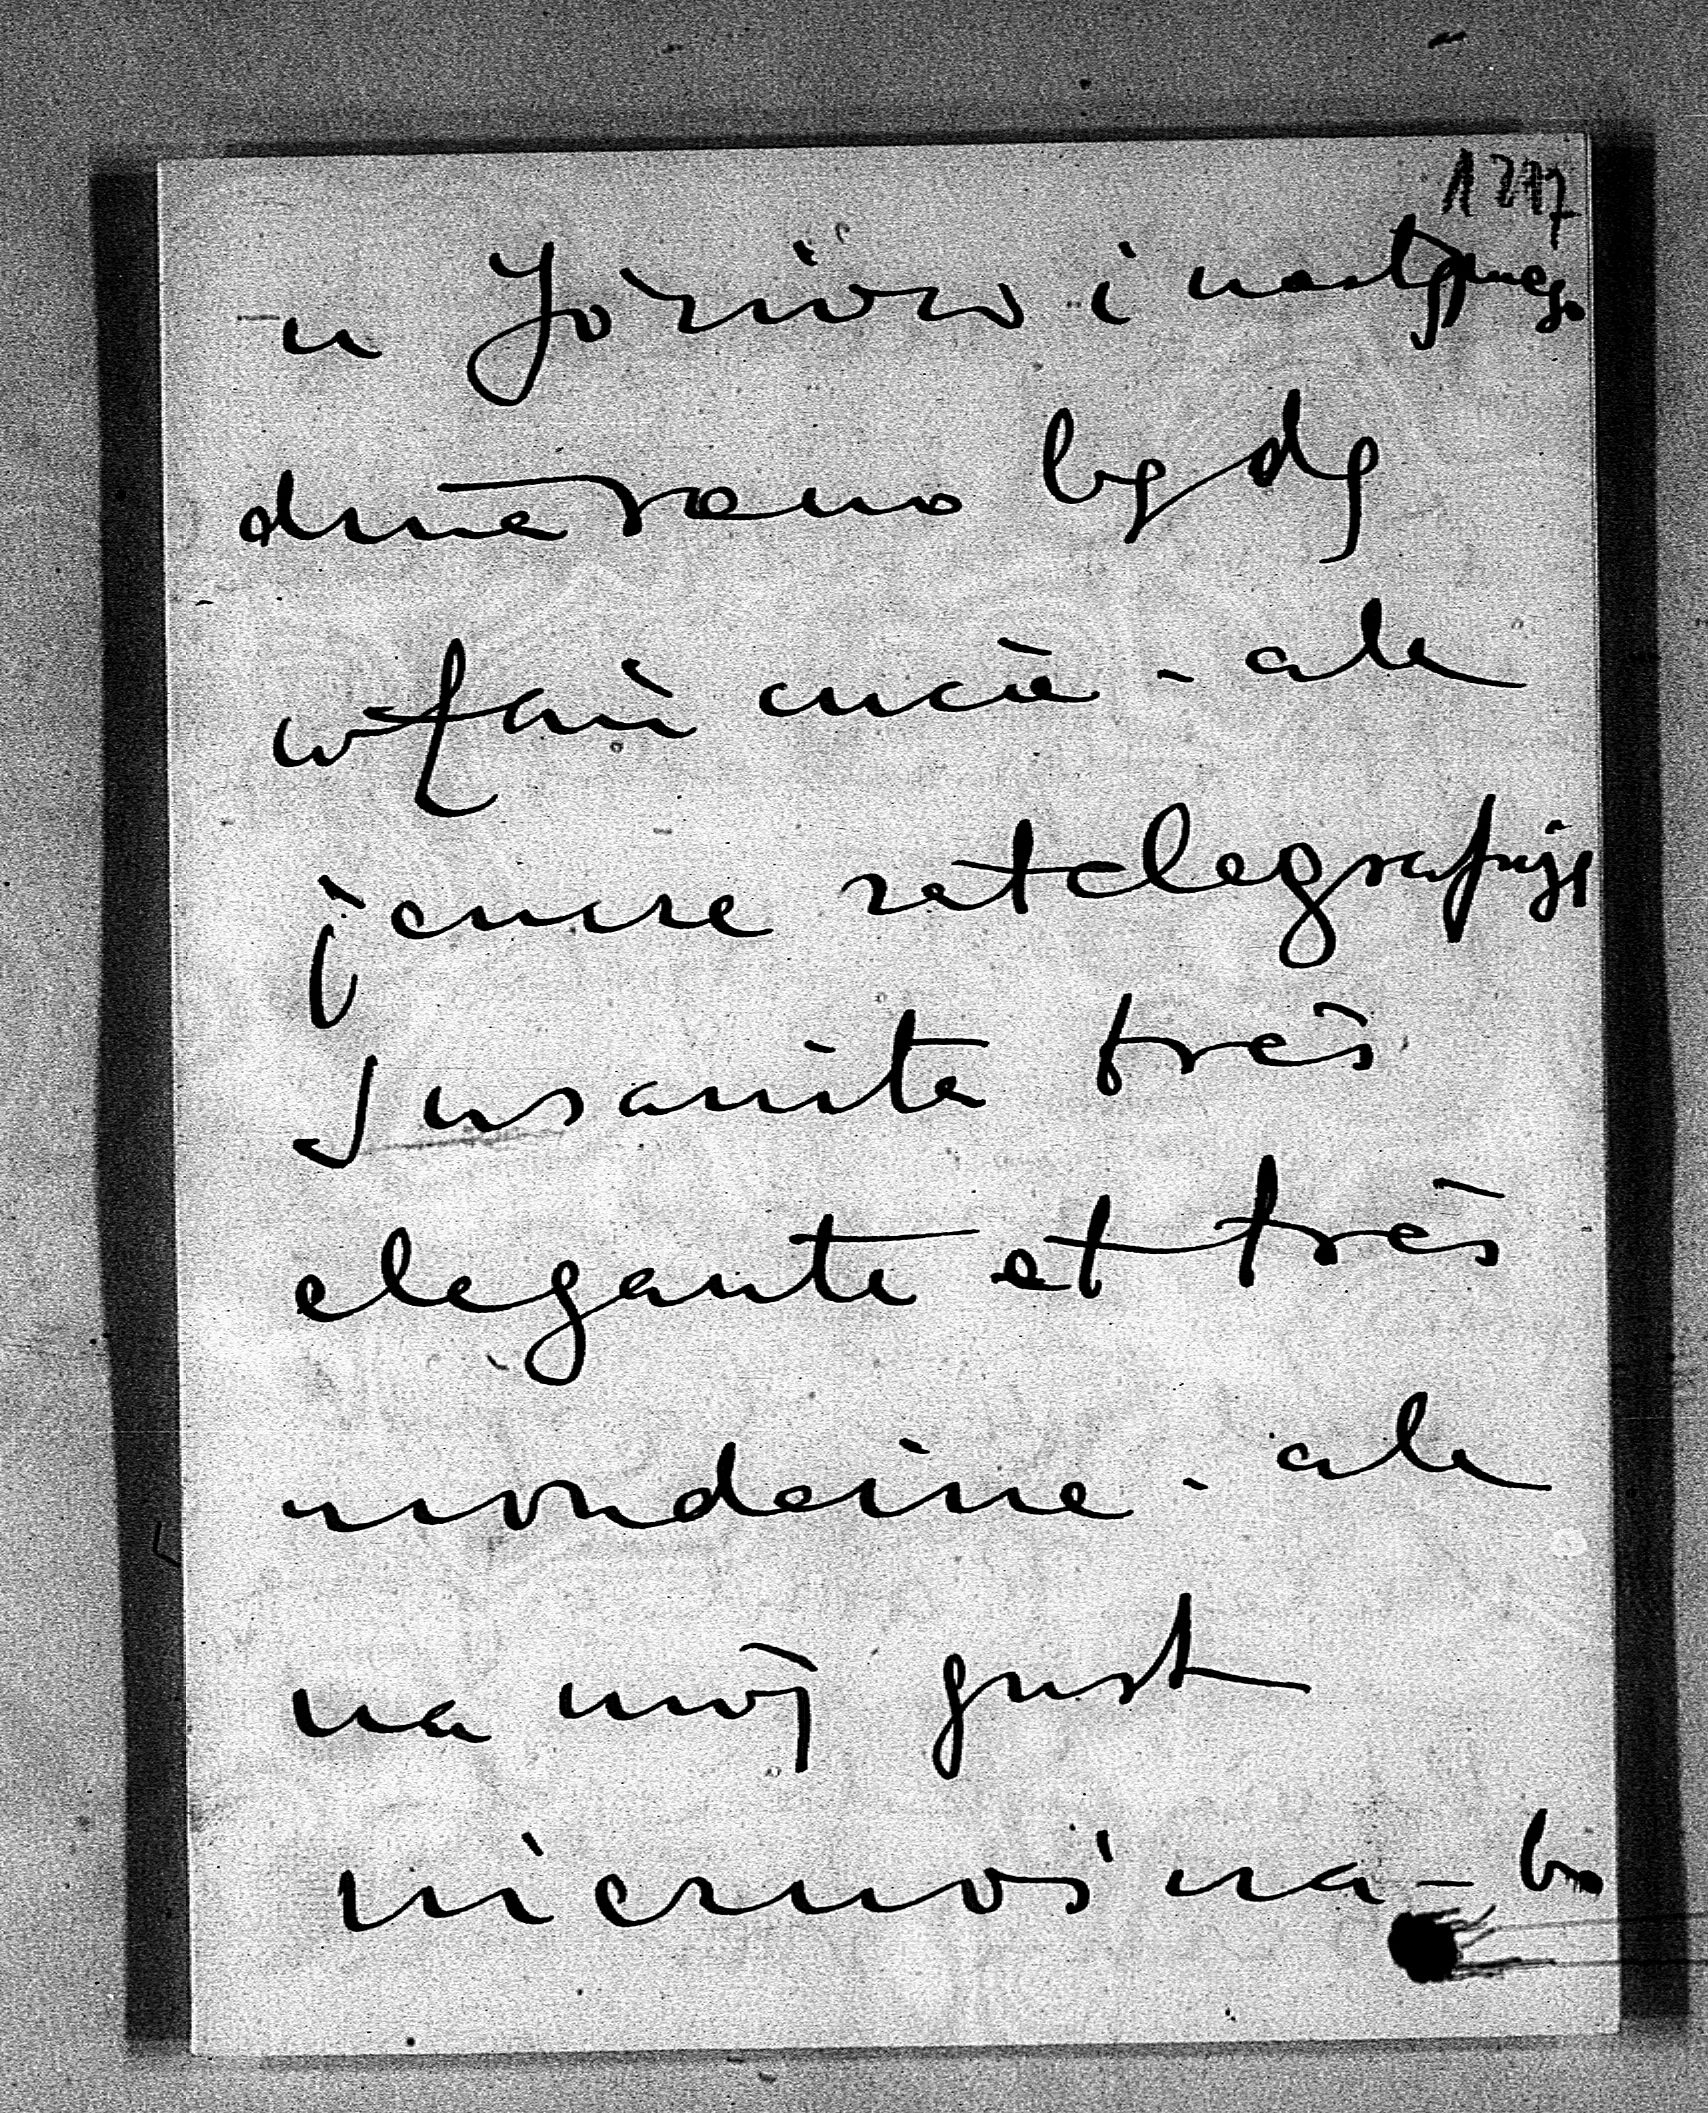 1717
u Józiów i następnego
dnia rano będę
w Łańcucie - ale
jeszcze zatelegrafuję
Susanita très
elegante et très
mondaine - ale
na mój gust
nieznośna - bo